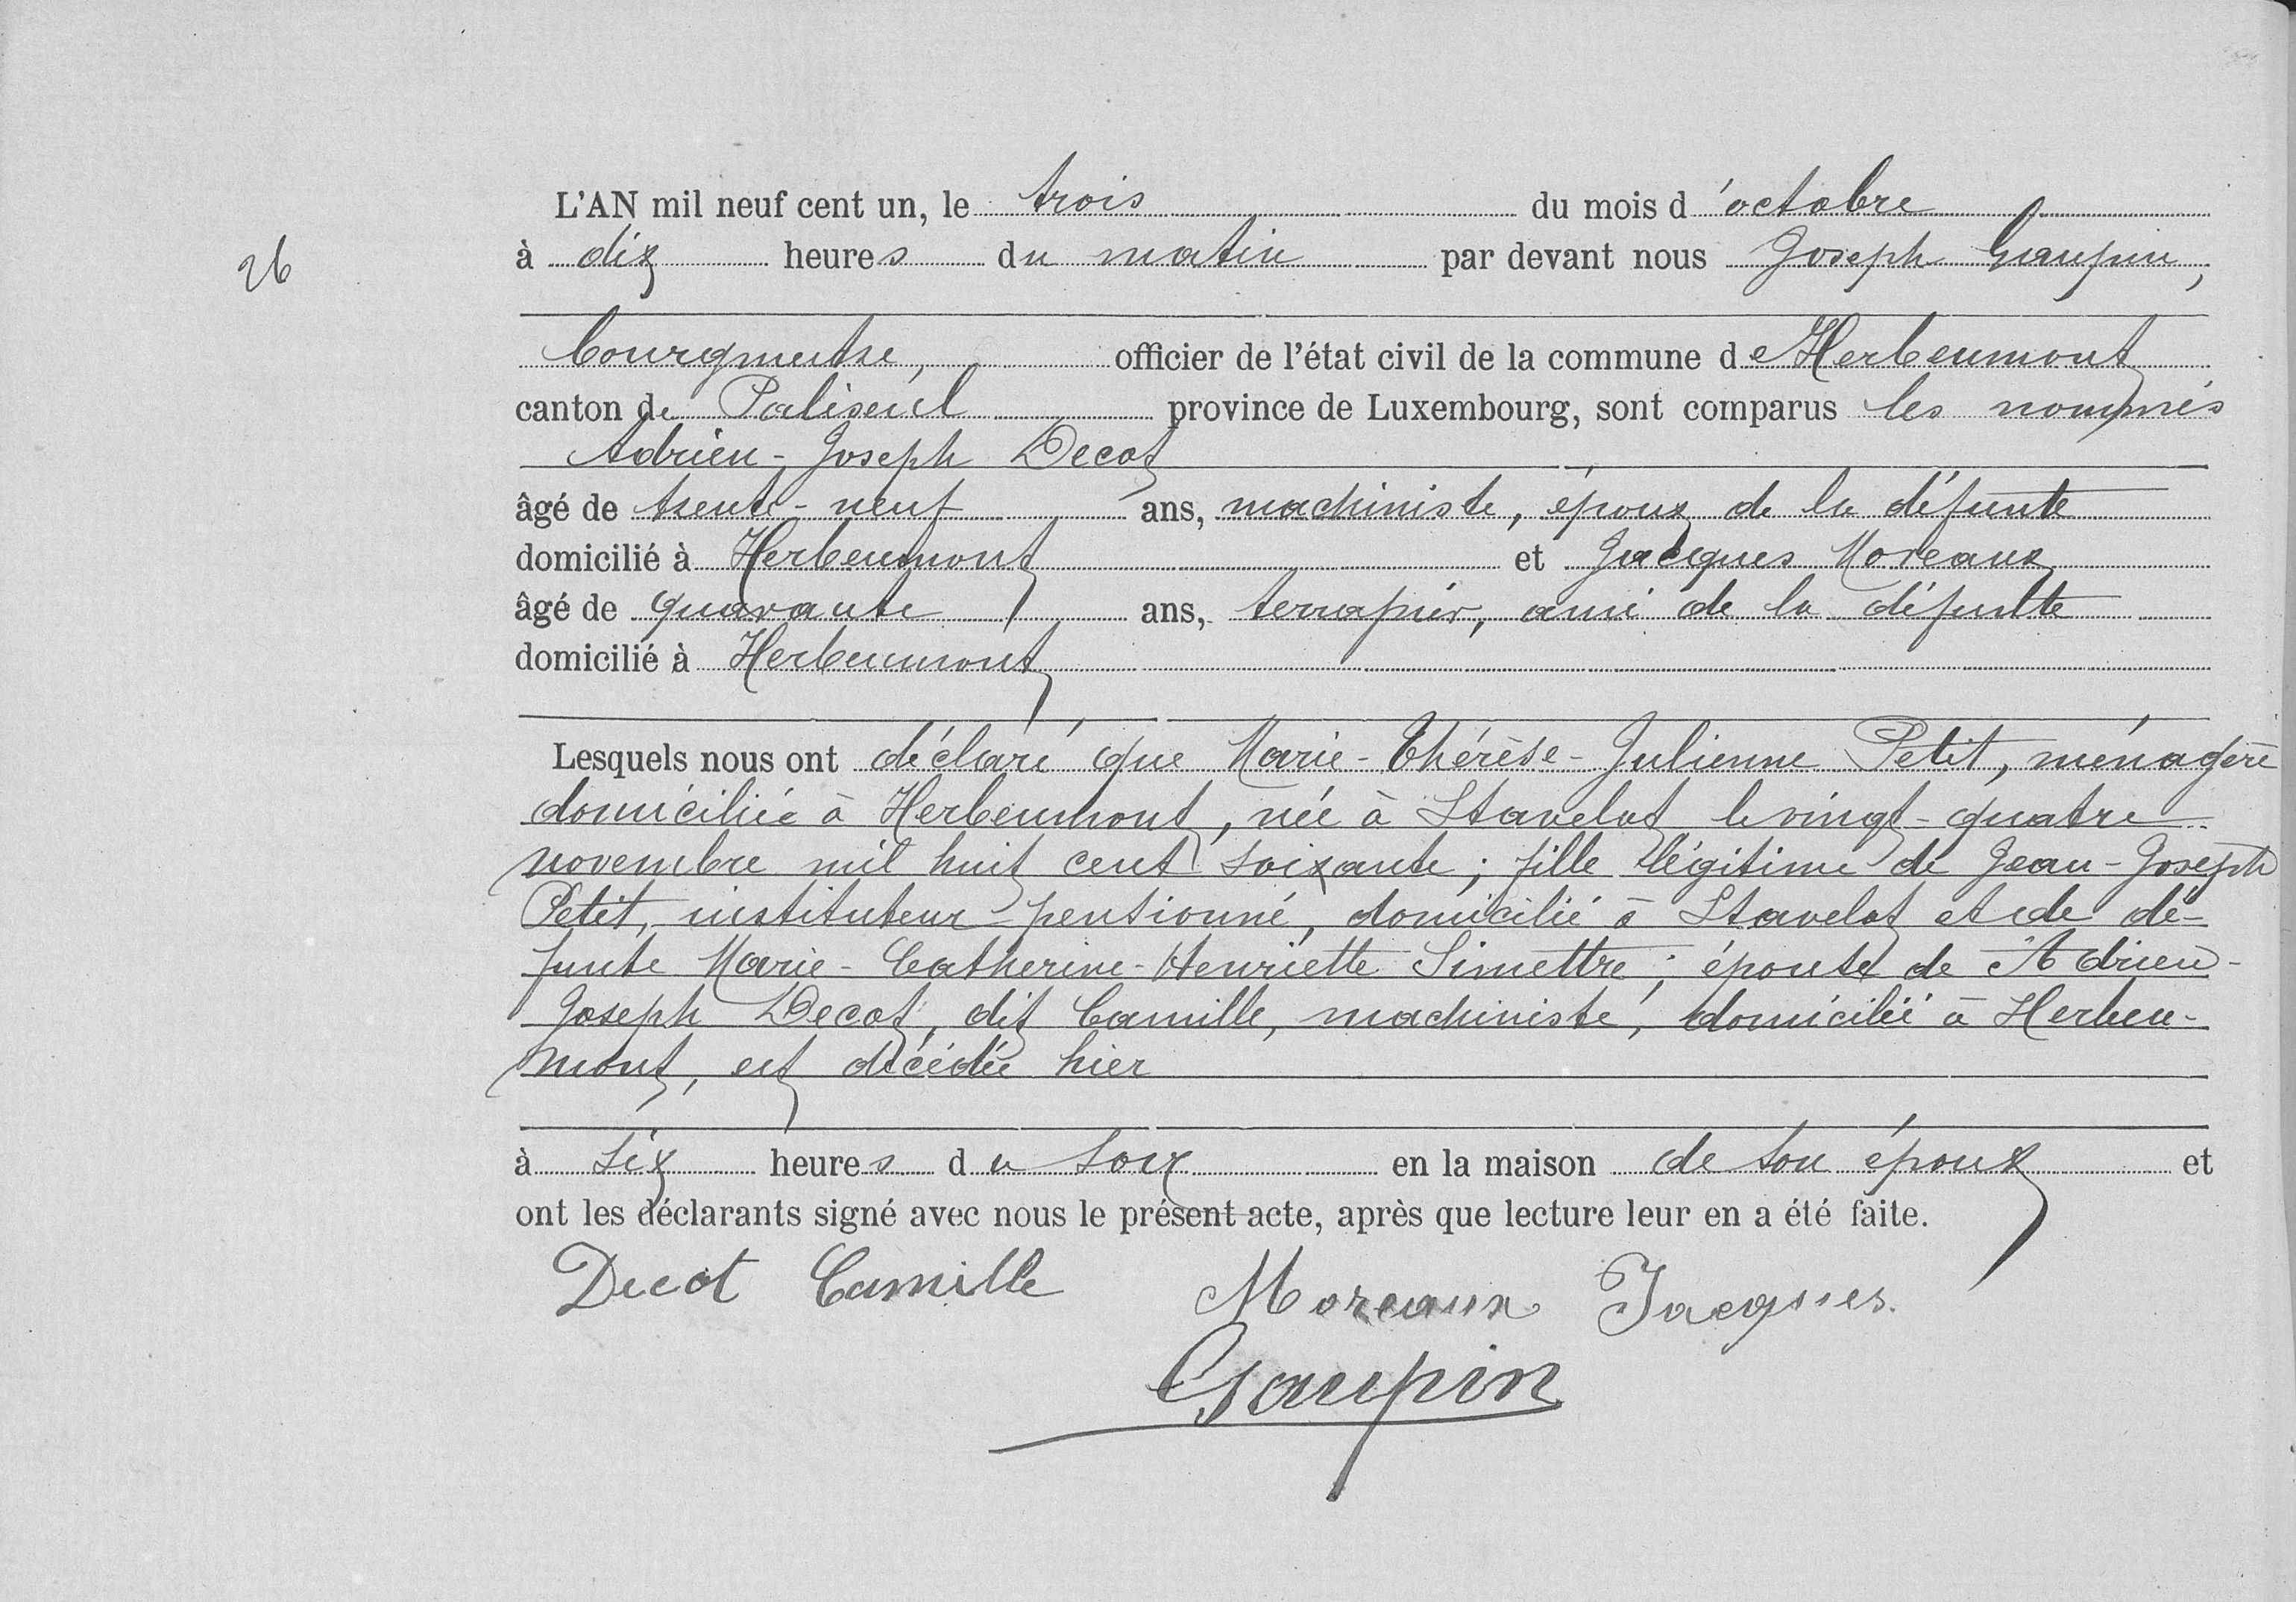 26
L'AN mil neuf cent un, le trois du mois d'octobre
à dix heures du matin par devant nous Joseph Gaupin,
bourgmestre, officier de l'état civil de la commune de Herbeumont
canton de Paliseul province de Luxembourg, sont comparus les nommés
Adrien-Joseph Decot
âgé de trente-neuf ans, machiniste, époux de la défunte
domicilié à Herbeumont et Jacques Moreaux
âgé de quarante ans, ami de la défunte
domicilié à Herbeumont
Lesquels nous ont déclaré que Marie-Thérèse-Julienne Petit, ménagère
domiciliée à Herbeumont, née à Stavelot le vingt-quatre
novembre mil huit cent soixante; fille légitime de Jean-Joseph
Petit, instituteur pensionné, domicilié à Stavelot et de dé-
funte Marie-Catherine-Henriette Simettre; épouse de Adrien-
Joseph Decot, dit Camille, machiniste, domicilié à Herbeu-
mont, est décédée hier
à six heures du soir en la maison de son époux et
ont les déclarants signé avec nous le présent acte, après que lecture leur en a été faite.
Decot Camille Moreaux Jacques.
Gaupin